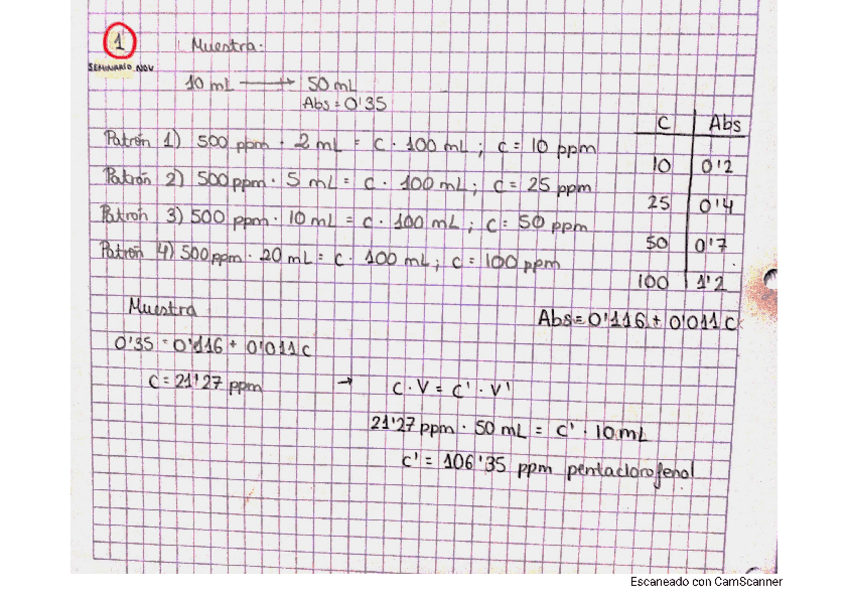 1
SEMINARIO NOV
Muestra:
10 mL → 50 mL
Abs = 0'35
Patrón 1) 500 ppm · 2 mL = C · 100 mL ; C = 10 ppm
Patrón 2) 500 ppm · 5 mL = C · 100 mL ; C = 25 ppm
Patrón 3) 500 ppm · 10 mL = C · 100 mL ; C = 50 ppm
Patrón 4) 500 ppm · 20 mL = C · 100 mL ; C = 100 ppm
C Abs
10 0'2
25 0'4
50 0'7
100 1'2
Abs = 0'116 + 0'011 C
Muestra
0'35 = 0'116 + 0'011 C
C = 21'27 ppm → C · V = C' · V'
21'27 ppm · 50 mL = C' · 10 mL
C' = 106'35 ppm pentaclorofenol
Escaneado con CamScanner